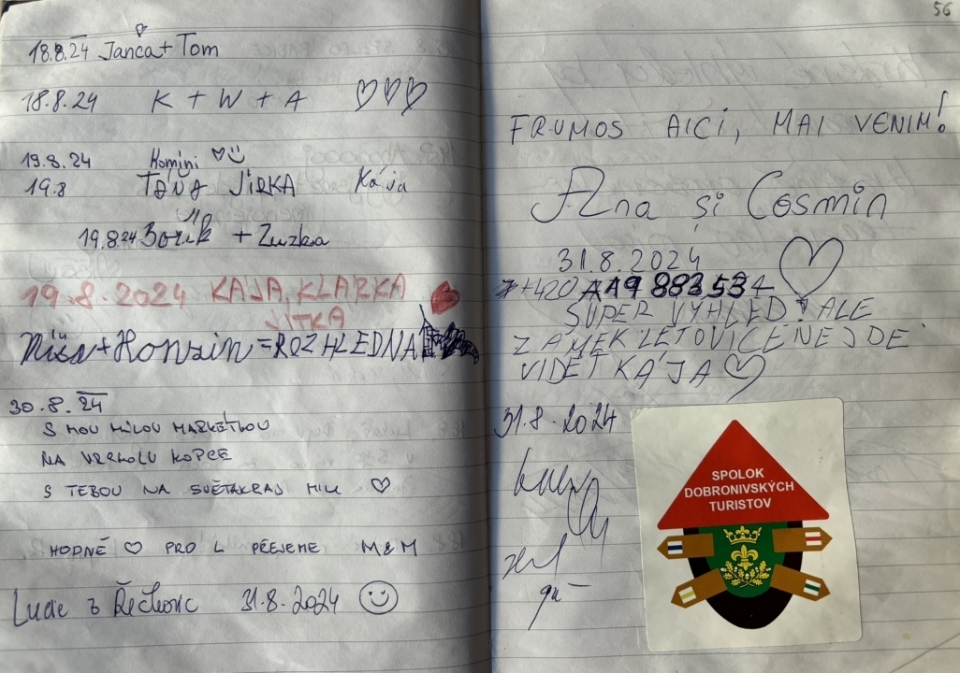 18.8.24 Janča + Tom
18.8.24 K + W + A ♡♡♡
19.8.24 Komíni ♡
19.8 TÁŇA JIRKA Kája
19.8.24 Bořík + Zuzka
19.8.2024 KÁJA, KLÁRKA
JITKA
Míša + Honzin = ROZHLEDNA
30.8.24
S MOU MILOU MARKÉTKOU
NA VRCHOLU KOPCE
S TEBOU NA SVĚTAKRAJ MILL ♡
HODNĚ ♡ PRO L PŘEJEME M&M
Lucie z Řečkovic 31.8.2024
56
FRUMOS AICI, MAI VENIM!
Ana și Cosmin
31.8.2024 ♡
+420 119 883 534
SUPER VÝHLED! ALE
ZÁMEK LETOVICE NEJDE
VIDĚT KÁJA ♡
31.8.2024
SPOLOK
DOBRONIVSKÝCH
TURISTOV